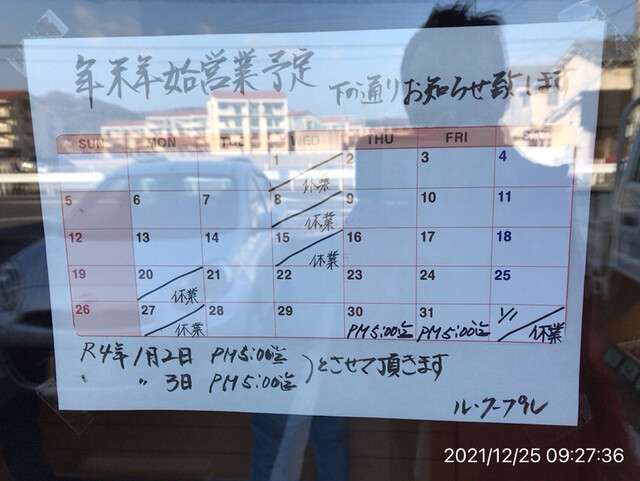 年末年始営業予定 下の通りお知らせ致します
SUN MON TUE WED THU FRI SAT
1 休業 2 3 4
5 6 7 8 休業 9 10 11
12 13 14 15 休業 16 17 18
19 20 休業 21 22 23 24 25
26 27 休業 28 29 30 PM5:00迄 31 PM5:00迄 1/1 休業
R4年1月2日 PM5:00迄
〃 3日 PM5:00迄 )とさせて頂きます
ル・クープル
2021/12/25 09:27:36